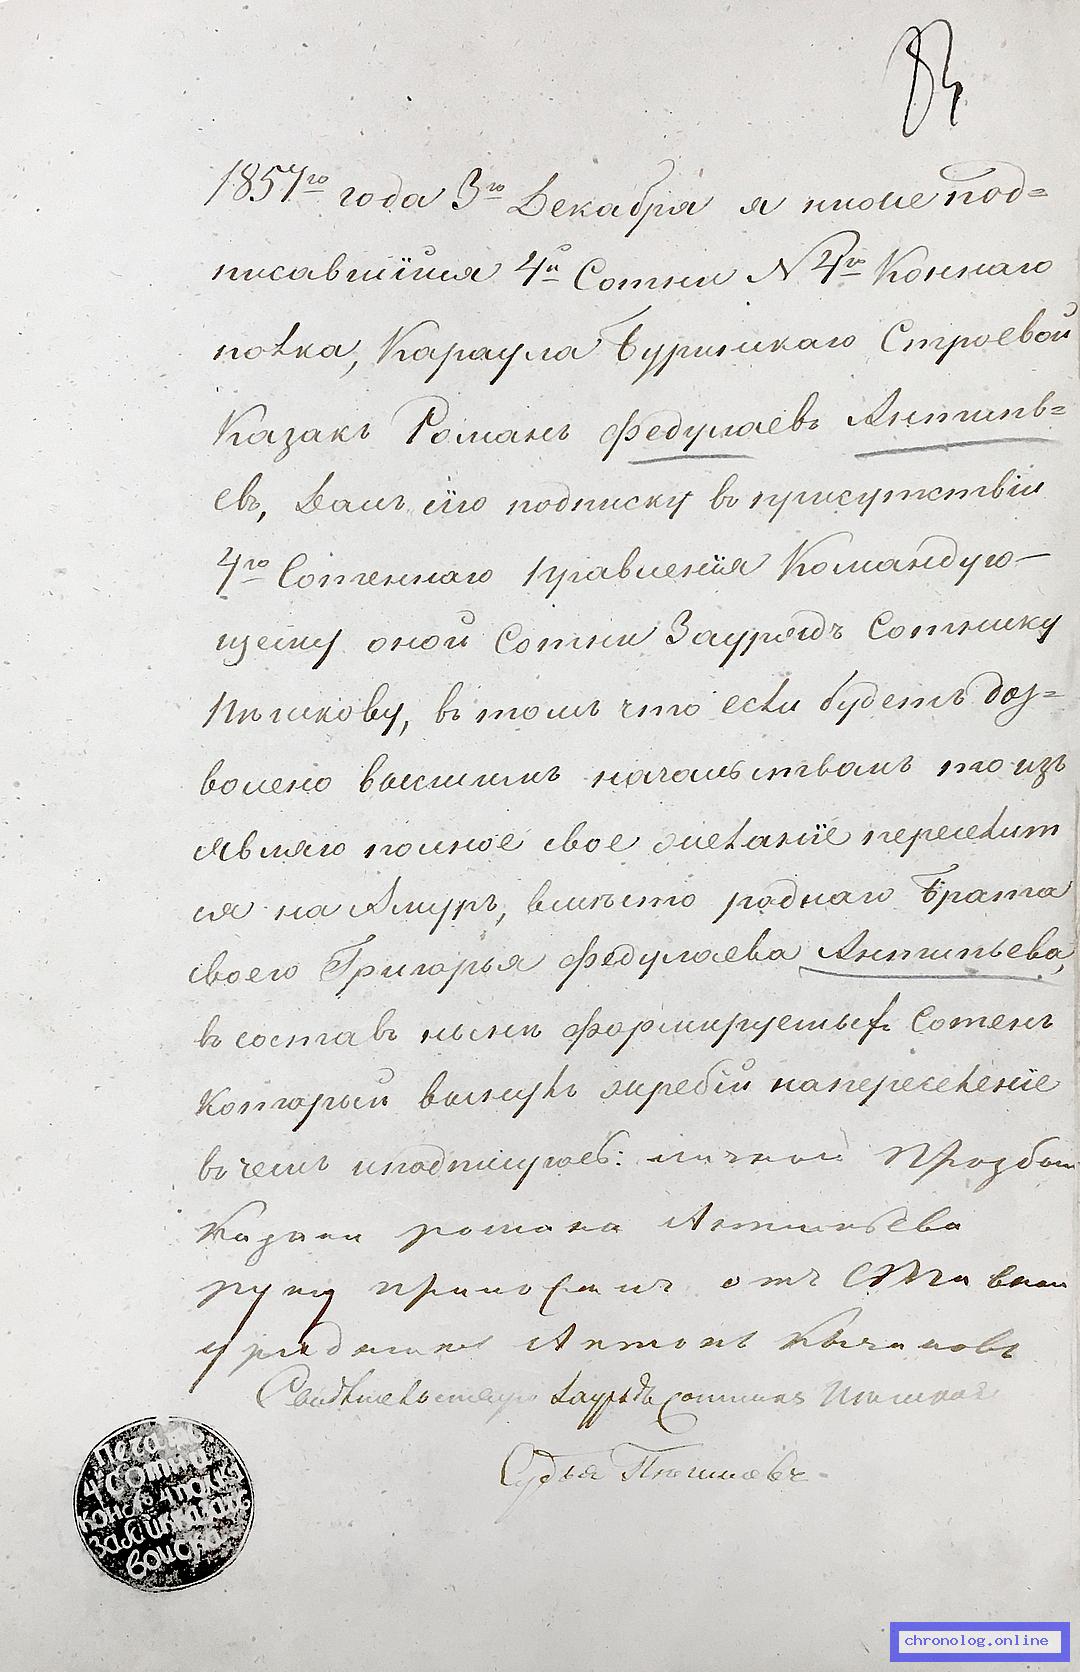 84
1857го года 3го Декабря я ниже под=
писавшійся 4й Сотни №4го Коннаго
полка, Караула Буринскаго Строевой
Казакъ Романъ Федулаевъ Антипь=
евъ, Далъ сію подписку въ присутствіи
4го Сотеннаго правленія Командую-
щему оной Сотни Заурядъ Сотнику
Пѣшкову, въ томъ что если будетъ доз=
волено высшимъ начальствомъ то изъ
являю полное свое желаніе переселит
ся на Амуръ, вмѣсто роднаго Брата
своего Григорья Федулаева Антипьева,
въ составъ нынѣ формируемых Сотенъ
который вынулъ жребій на переселеніе
въ чемъ и подпишуюсь: личной Прозбой
Казака романа Антипьева
руку приложилъ отъ
урядникъ Антонъ
Свидѣтельствую Заурядъ сотникъ Пѣшковъ
Судья
Печать
4 Сотни
Конаго 4 полка
Забайкальск
войска
chronolog.online